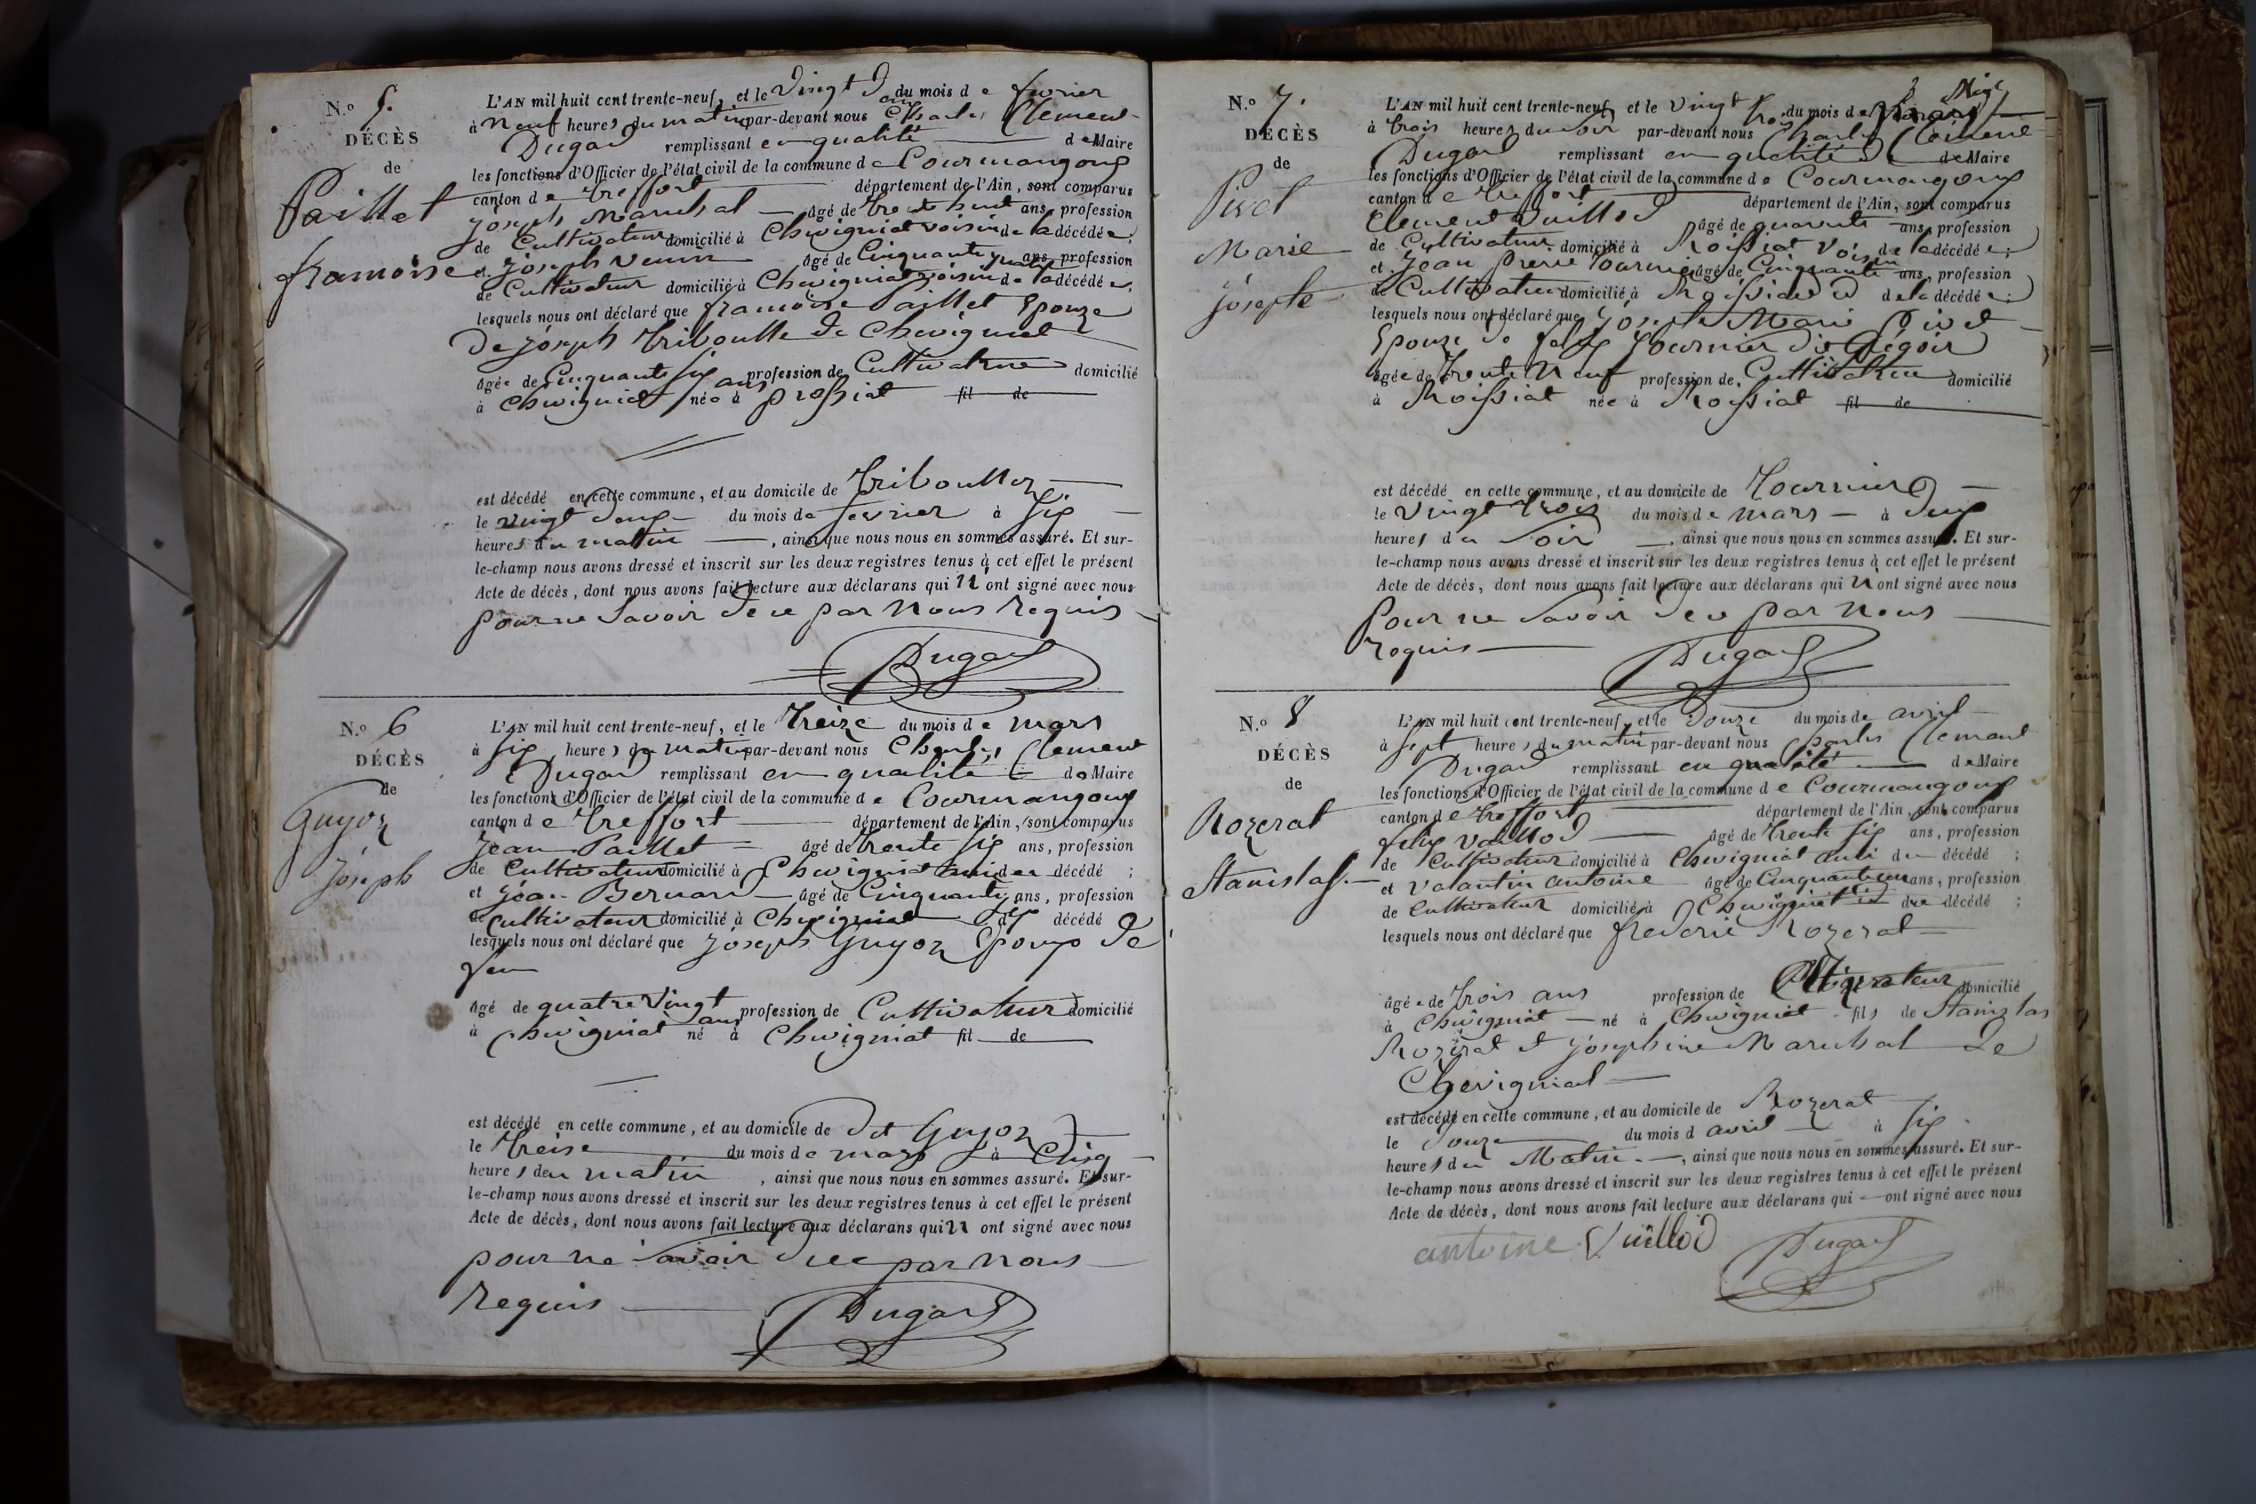 N.o 5.
DÉCÈS
de
Paillet
françoise
L'AN mil huit cent trente-neuf, et le Vingt deux du mois de février
à neuf heures du matin par-devant nous Charles Clement
Dugad remplissant en qualité de Maire
les fonctions d'Officier de l'état civil de la commune de Courmangoux
canton de treffort département de l'Ain, sont comparus
joseph Marechal âgé de trente huit ans, profession
de Cultivateur domicilié à Chevigniat voisin de la décédée;
et joseph âgé de Cinquante quatre ans, profession
de Cultivateur domicilié à Chevigniat voisin de la décédée;
lesquels nous ont déclaré que françoise Paillet Epouze
De joseph triboulle de Chevigniat
âgée de Cinquante six ans profession de Cultivatrice domicilié
à Chevigniat née à Prossiat fil de
est décédé en cette commune, et au domicile de
le vingt deux du mois de fevrier à six
heures du matin, ainsi que nous nous en sommes assuré. Et sur-
le-champ nous avons dressé et inscrit sur les deux registres tenus à cet effet le présent
Acte de décès, dont nous avons fait lecture aux déclarans qui n'ont signé avec nous
pour ne Savoir de ce par nous requis
Dugad
N.o 6
DÉCÈS
de
Guyon
joseph
L'AN mil huit cent trente-neuf, et le treize du mois de mars
à six heures du matin par-devant nous Charles Clement
Dugad remplissant en qualité de Maire
les fonctions d'Officier de l'état civil de la commune de Courmangoux
canton de treffort département de l'Ain, sont comparus
jean Paillet âgé de trente six ans, profession
de Cultivateur domicilié à Chevigniat ami du décédé;
et jean Bernard âgé de Cinquante ans, profession
de Cultivateur domicilié à Chevigniat décédé
lesquels nous ont déclaré que joseph Guyon Epoux de
feu
âgé de quatre vingt ans profession de Cultivateur domicilié
à Chevigniat né à Chevigniat fil de
est décédé en cette commune, et au domicile de dit Guyon
le treise du mois de mars à Cinq
heures du matin, ainsi que nous nous en sommes assuré. Et sur-
le-champ nous avons dressé et inscrit sur les deux registres tenus à cet effet le présent
Acte de décès, dont nous avons fait lecture aux déclarans qui n ont signé avec nous
pour ne Savoir de ce par nous
requis
Dugad
N.o 7.
DÉCÈS
de
Pivet
Marie
josephte
L'AN mil huit cent trente-neuf et le vingt trois du mois de
à trois heures du soir par-devant nous Charles Clement
Dugad remplissant en qualité de de Maire
les fonctions d'Officier de l'état civil de la commune de Courmangoux
canton de treffort département de l'Ain, sont comparus
Clement Vuillod âgé de quarante ans, profession
de Cultivateur domicilié à Roissiat voisin de la décédée;
et Jean Pierre tournier âgé de Cinquante ans, profession
de Cultivateur domicilié à Roissiat de la décédée;
lesquels nous ont déclaré que josephte Marie Pivet
Epouze de felix tournier dit Gregoir
âgée de trente neuf profession de Cultivatrice domicilié
à Roissiat née à Roissiat fil de
est décédé en cette commune, et au domicile de tournier
le vingt trois du mois de mars à deux
heures du Soir, ainsi que nous nous en sommes assuré. Et sur-
le-champ nous avons dressé et inscrit sur les deux registres tenus à cet effet le présent
Acte de décès, dont nous avons fait lecture aux déclarans qui n ont signé avec nous
pour ne Savoir de ce par nous
requis
Dugad
N.o 8
DÉCÈS
de
Rozerat
Stanislas
L'AN mil huit cent trente-neuf, et le Douze du mois de avril
à Sept heures du matin par-devant nous Charles Clement
Dugad remplissant en qualité de Maire
les fonctions d'Officier de l'état civil de la commune de Courmangoux
canton de treffort département de l'Ain, sont comparus
felix Vuillod âgé de trente six ans, profession
de Cultivateur domicilié à Chevigniat ami du décédé;
et Valantin antoine âgé de Cinquante ans, profession
de Cultivateur domicilié à Chevigniat du décédé;
lesquels nous ont déclaré que frederic Rozerat
âgé de trois ans profession de domicilié
à Chevigniat né à Chevigniat fils de Stanislas
Rozerat et josephine Marechal de
Chevigniat
est décédé en cette commune, et au domicile de Rozerat
le Douze du mois d avril à six
heures du Matin, ainsi que nous nous en sommes assuré. Et sur-
le-champ nous avons dressé et inscrit sur les deux registres tenus à cet effet le présent
Acte de décès, dont nous avons fait lecture aux déclarans qui ont signé avec nous
antoine Vuillod
Dugad